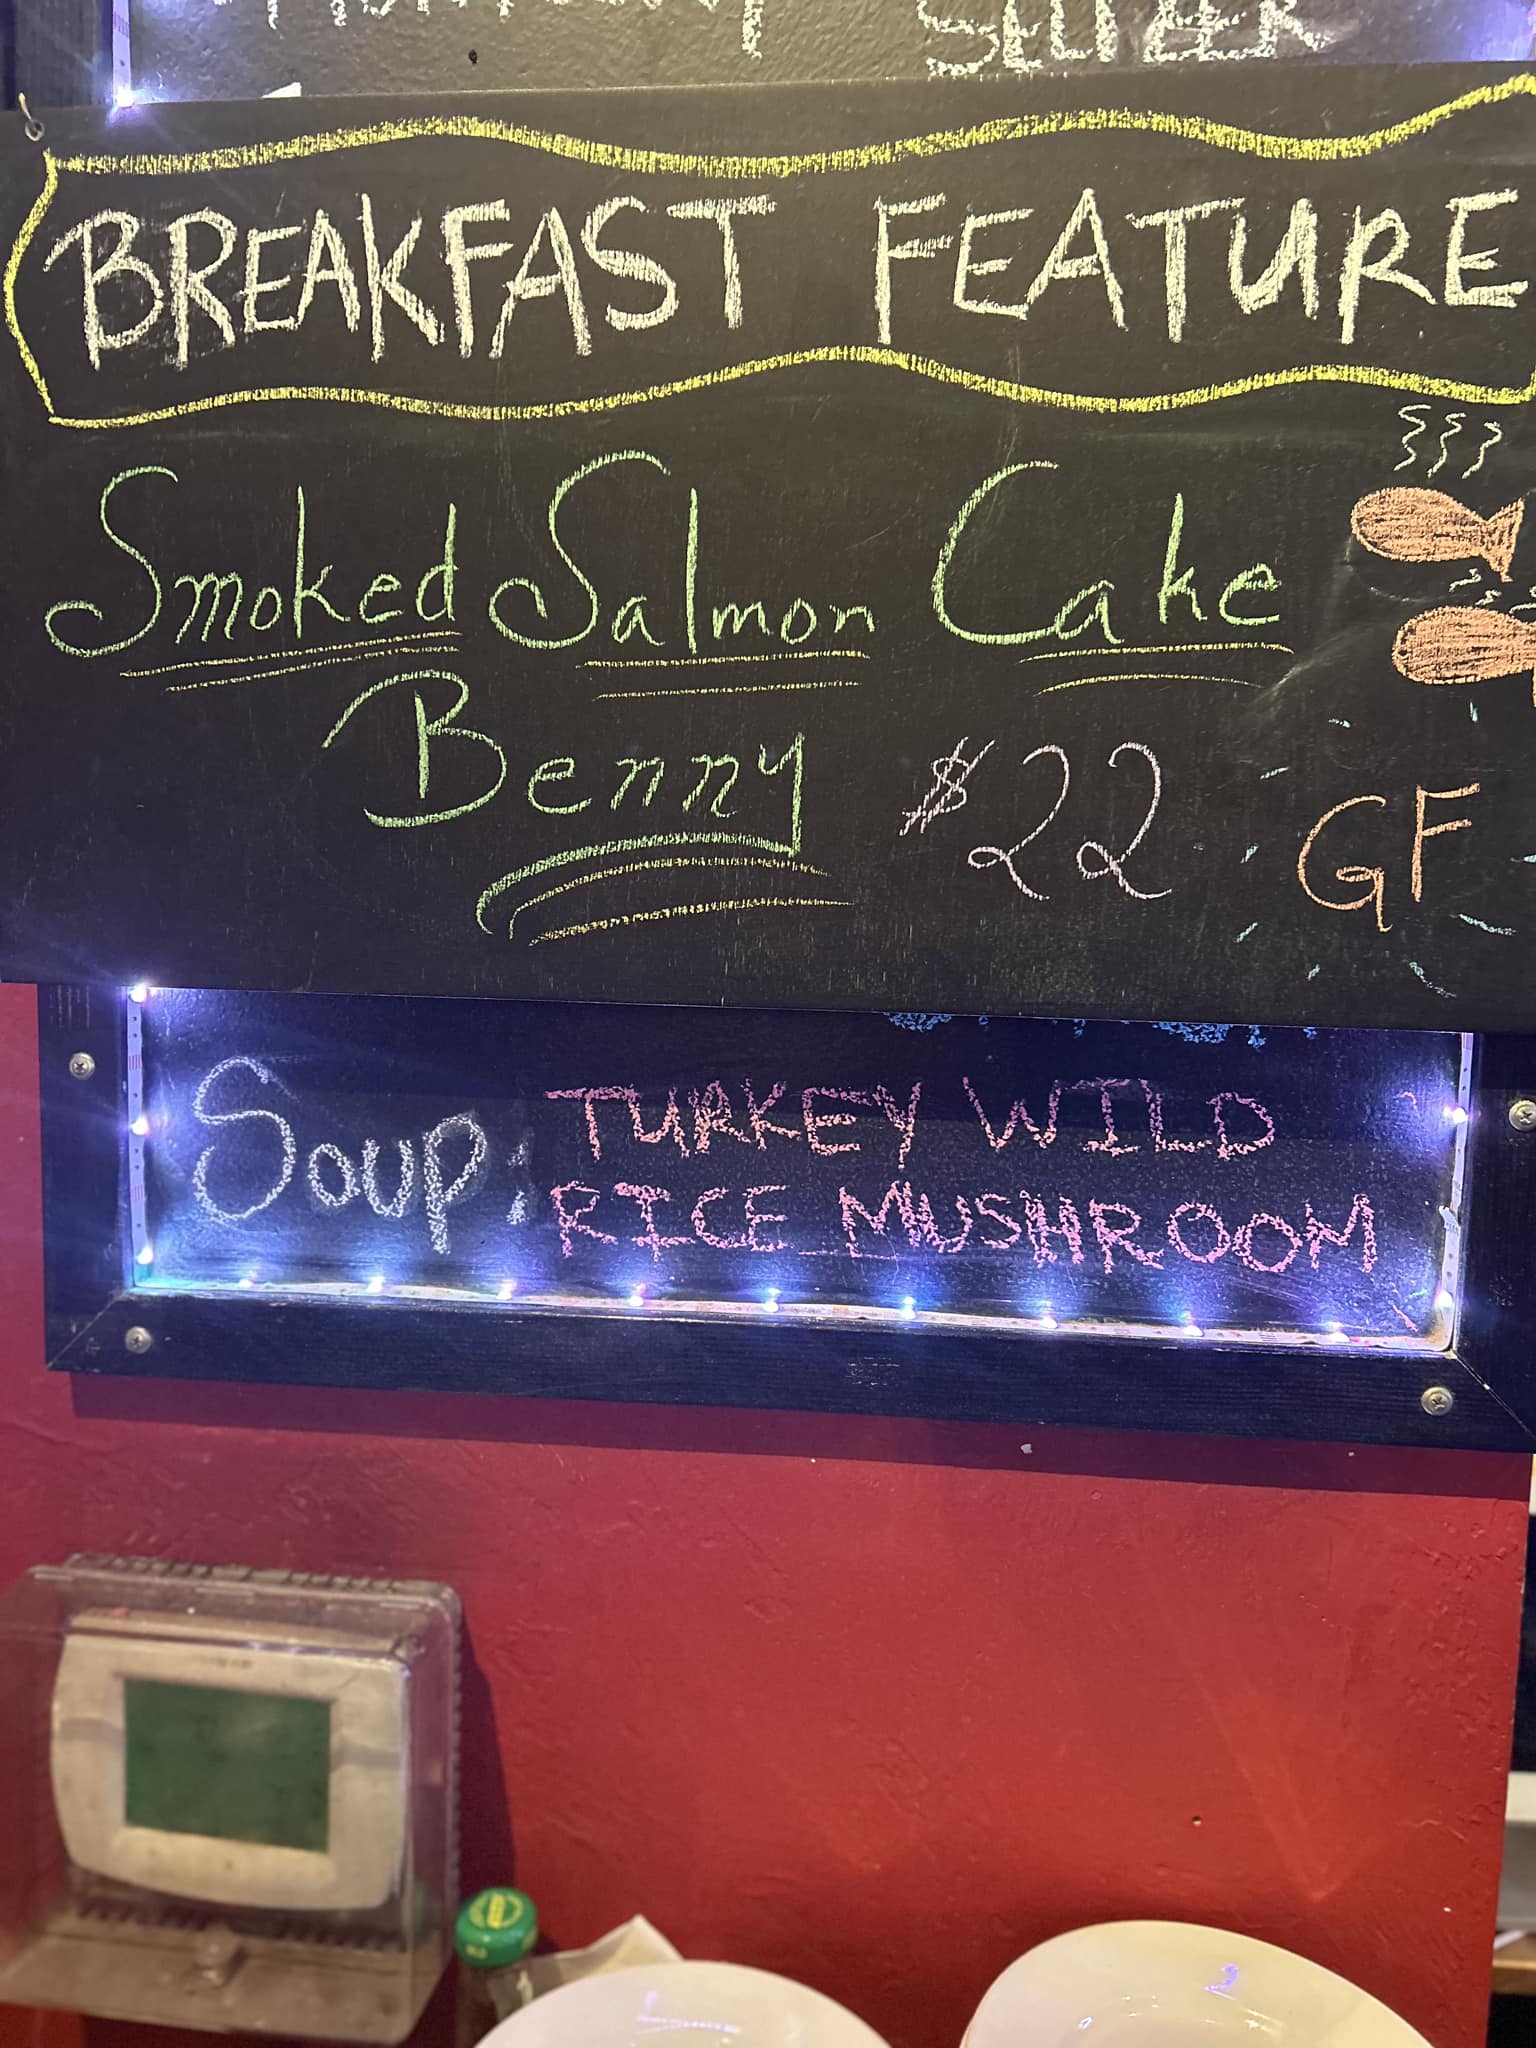 BREAKFAST FEATURE
Smoked Salmon Cake
Benny $22 GF
Soup: TURKEY WILD
RICE MUSHROOM